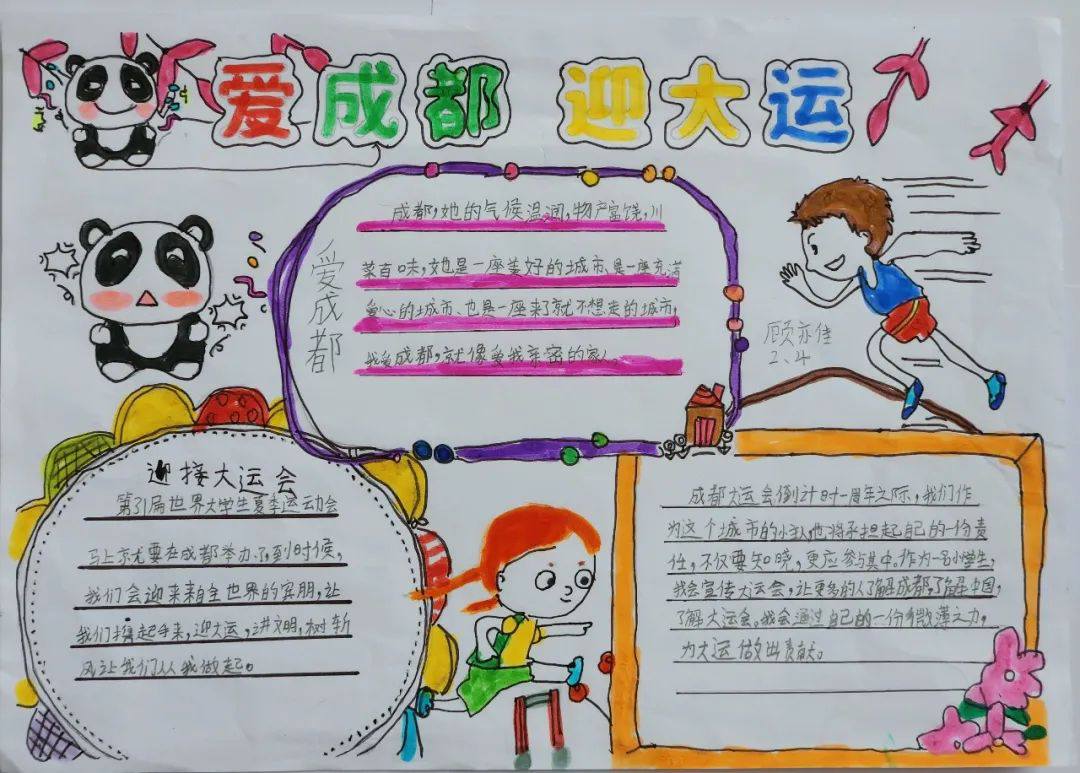 爱成都 迎大运
爱成都
成都,她的气候温润,物产富饶,川
菜百味,她是一座美好的城市、是一座充满
爱心的城市、也是一座来了就不想走的城市,
我爱成都,就像爱我亲密的家人。
顾亦佳
2、4
迎接大运会
第31届世界大学生夏季运动会
马上就要在成都举办了,到时候,
我们会迎来来自全世界的宾朋,让
我们携起手来,迎大运,讲文明,树新
风让我们从我做起。
成都大运会倒计时一周年之际,我们作
为这个城市的小主人也将承担起自己的一份责
任,不仅要知晓,更应参与其中。作为一名小学生,
我会宣传大运会,让更多的人了解成都,了解中国,
了解大运会。我会通过自己的一份微薄之力,
为大运做出贡献。